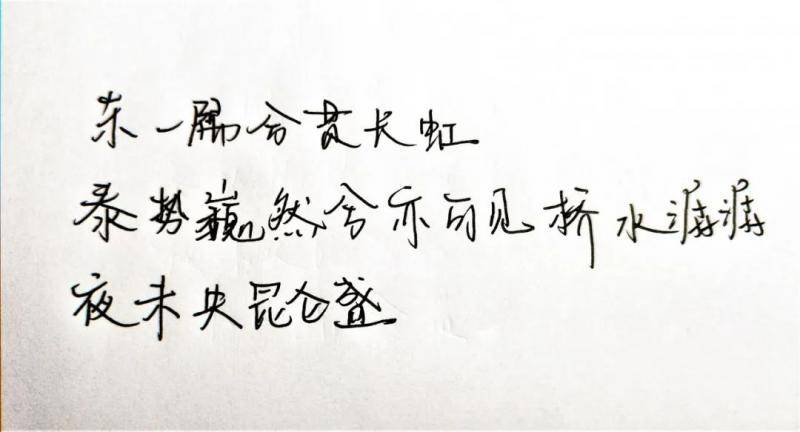 东一隅兮贯长虹
泰势巍然兮亦可见桥水潺潺
夜未央昆仑盛